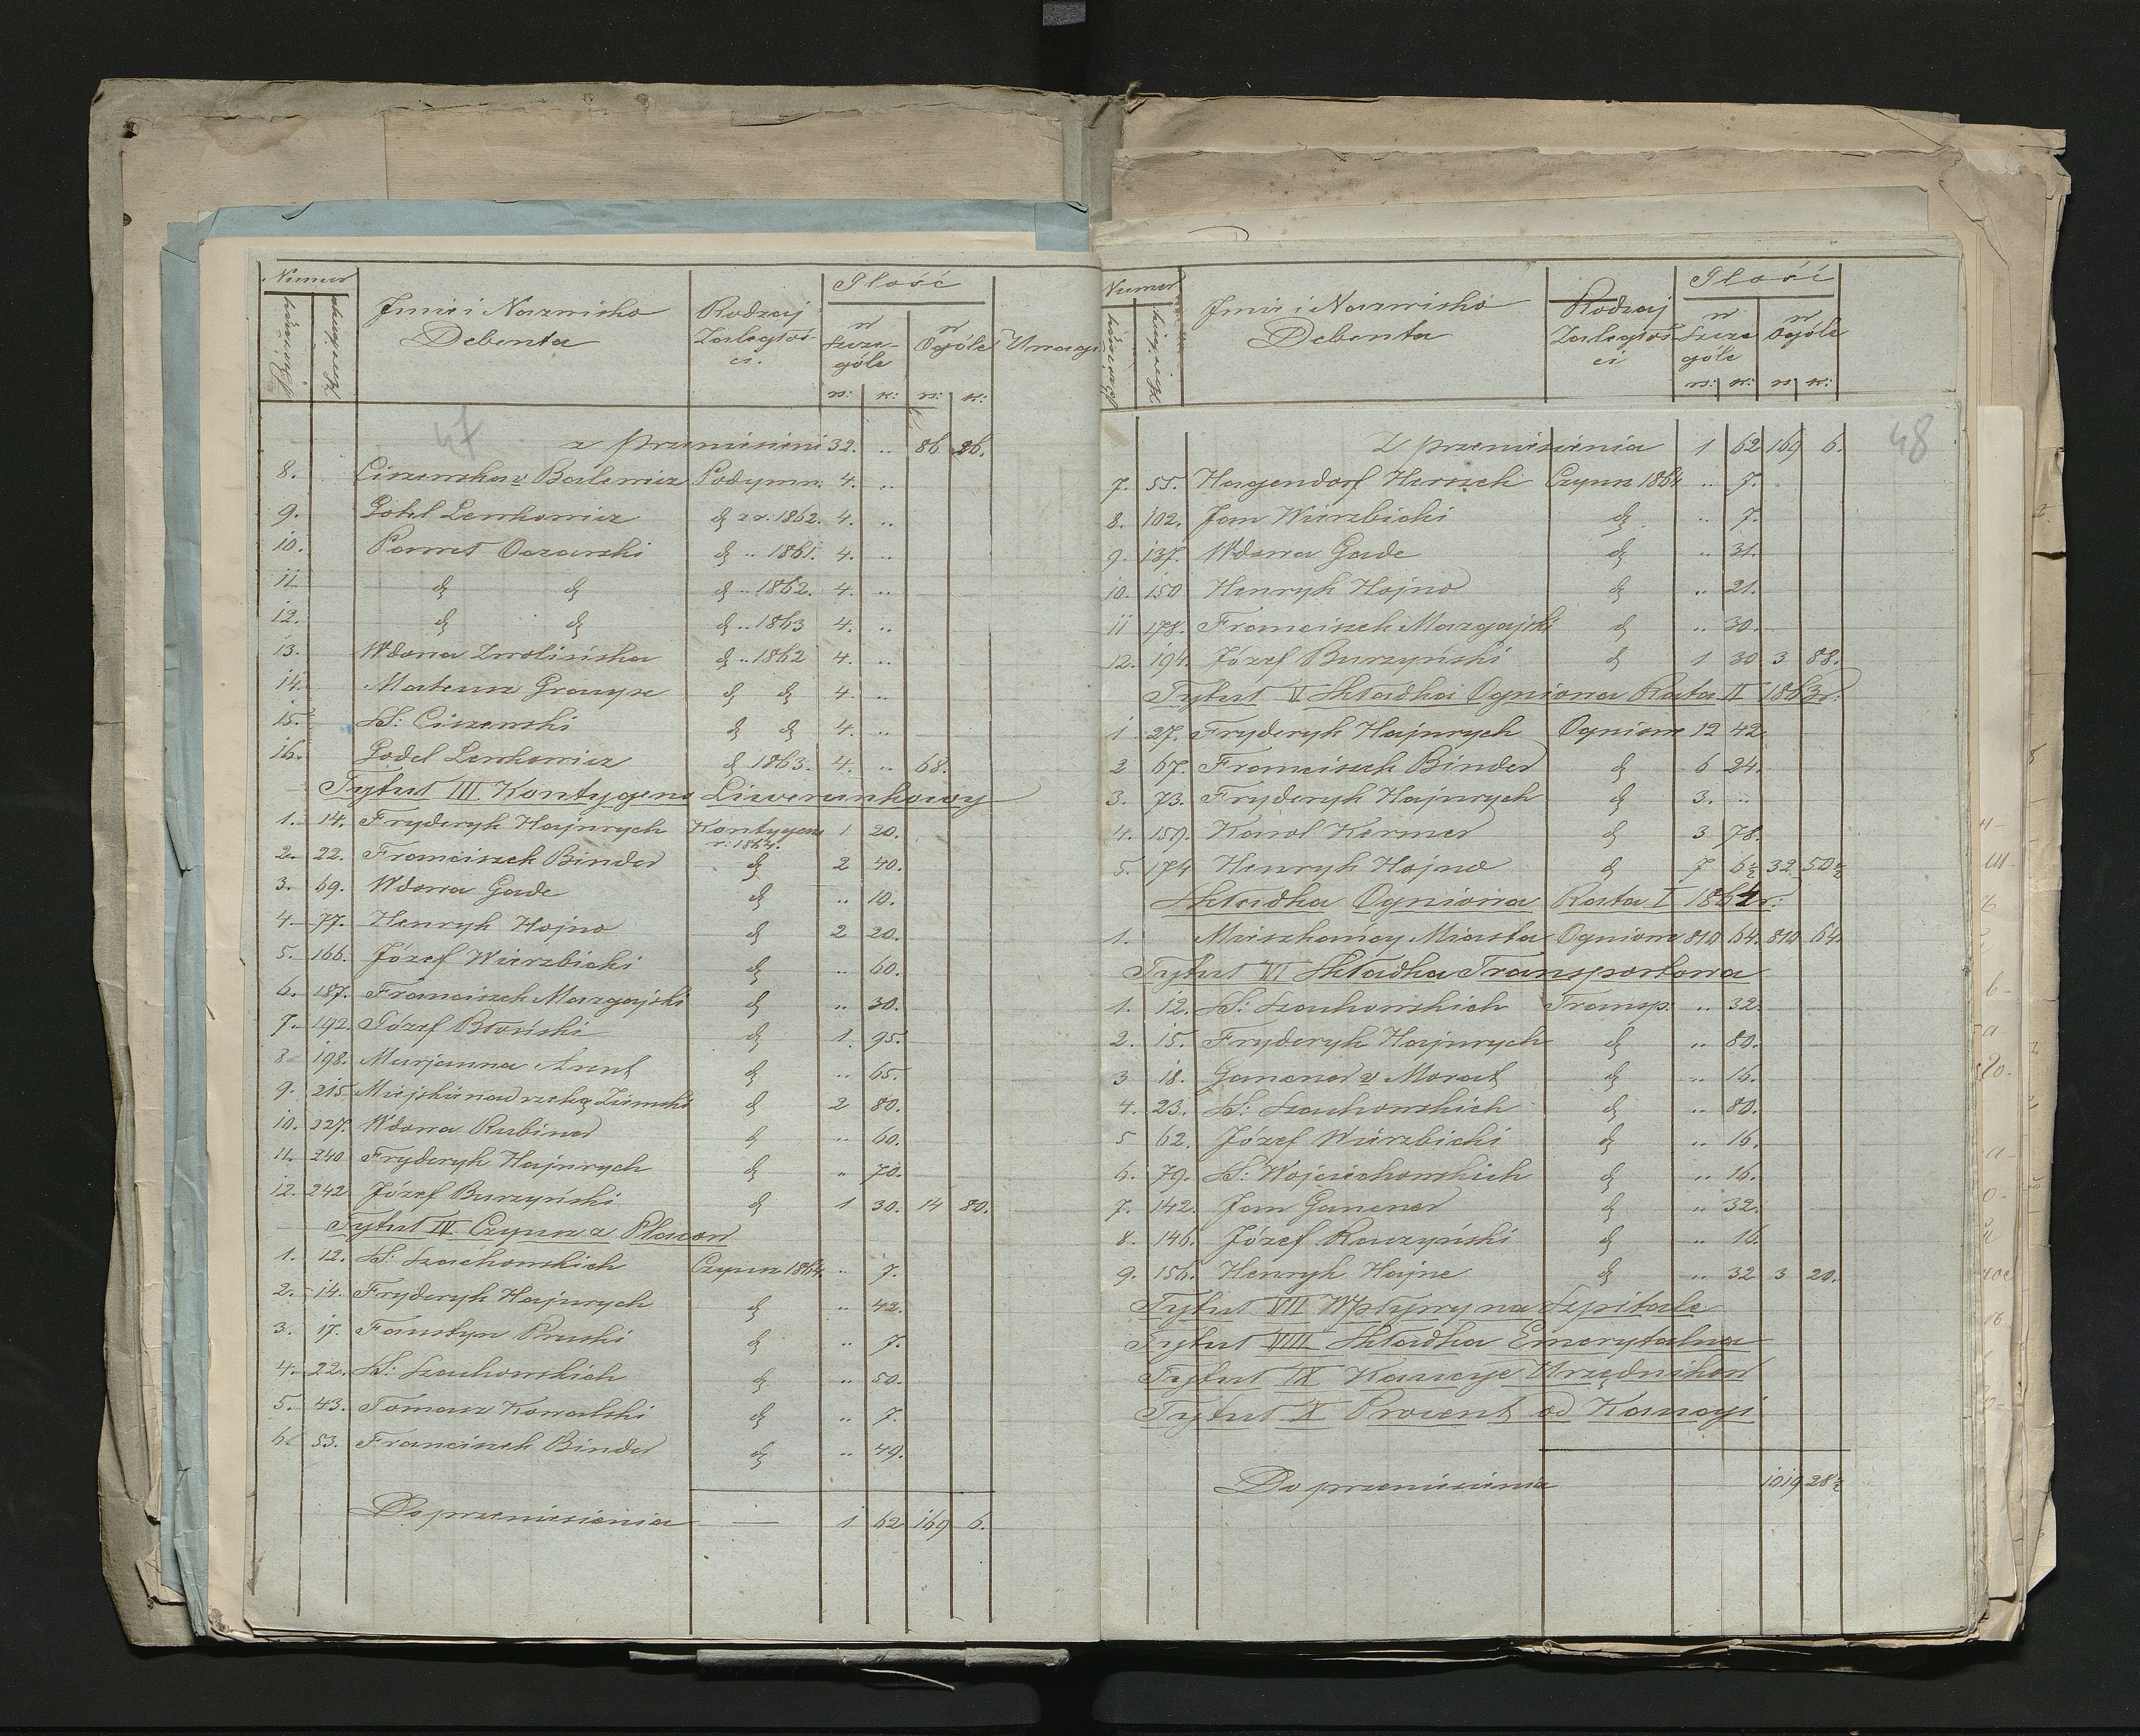 Numer
Imie i Nazwisko
Debenta
Rodzaj
Zaległoś-
ci.
Ilość
w
szcze-
góle
w
Ogóle
Uwagi
rs: k: rs: k:
47
z przeniesieni 32. .. 86 26.
8. Ciszewska v Balewicz Podymn. 4. ..
9. Gotel Lewkowicz dt z r: 1862. 4. ..
10. Paweł Ozarski dt .. 1861. 4. ..
11. dt dt dt .. 1862. 4. ..
12. dt dt dt .. 1863 4. ..
13. Wdowa Zwolińska dt .. 1862 4. ..
14. Mateusz Graups dt dt 4. ..
15. SS: Ciszewski dt dt 4. ..
16. Godel Lewkowicz dt 1863. 4. .. 68.
Tytuł III Kontygens Liwerunkowy
1. 14. Fryderyk Hajnrych Kontygens r: 1864. 1 20.
2. 22. Franciszek Binder dt 2 40.
3. 69. Wdowa Gade dt .. 10.
4. 77. Henryk Hojno dt 2 20.
5. 166. Józef Wierzbicki dt .. 60.
6. 187. Franciszek Mazgajski dt .. 30.
7. 192. Józef Błoński dt 1. 95.
8. 198. Marjanna Arent dt .. 65.
9. 215. Miejskie nad rzeką Ziemski dt 2 80.
10. 227. Wdowa Rubiner dt .. 60.
11. 240 Fryderyk Hajnrych dt .. 70.
12. 242 Józef Burzyński dt 1 30. 14 80.
Tytuł IV Czynsz z Placow
1. 12. SS: Szachowskich Czynsz 1864. .. 7.
2. 14. Fryderyk Hajnrych dt .. 42.
3. 17. Faustyn Pruski dt .. 7.
4. 22. SS: Szachowskich dt .. 50.
5. 43. Tomasz Kowalski dt .. 7.
6. 53. Franciszek Binder dt .. 49.
Do przeniesienia — 1 62 169 6.
Numer
Imie i Nazwisko
Debenta
Rodzaj
Zaległoś
ci
Ilość
w
Szcze
góle
w
Ogóle
rs: k: rs: k:
48
Z przeniesienia 1 62 169 6.
7. 55. Hagendorf Herszek Czynsz 1864 .. 7.
8. 102. Jan Wierzbicki dt .. 7.
9. 137. Wdowa Gade dt .. 31.
10. 150 Henryk Hojno dt .. 21.
11 178. Franciszek Mazgajski dt .. 30.
12. 194. Józef Burzyński dt 1 30 3 88.
Tytuł V Składka Ogniowa Rata II 1863r.
1 27. Fryderyk Hajnrych Ogniow 12 42.
2 67. Franciszek Binder dt 6 24.
3. 73. Fryderyk Hajnrych dt 3. ..
4. 159. Karol Kermer dt 3 78.
5. 174 Henryk Hojno dt 7 6½ 32 50½
Składka Ogniowa Rata I 1864r:
1. Mieszkańcy Miasta Ogniow 810 64. 810 64.
Tytuł VI Składka Transportowa
1. 12. SS: Szachowskich Transp. .. 32.
2. 15. Fryderyk Hajnrych dt .. 80.
3 18. Gancner v Morat dt .. 16.
4. 23. SS: Szachowskich dt .. 80.
5 62. Józef Wierzbicki dt .. 16.
6. 79. SS: Wojciechowskich dt .. 16.
7. 142. Jan Gancner dt .. 32.
8. 146. Józef Raczyński dt .. 16.
9. 156. Henryk Hajne dt .. 32 3 20.
Tytuł VII Wpływy na Szpitale
Tytuł VIII Składka Emerytalna
Tytuł IX Kaucyje Urzędnikow
Tytuł X Procent od Kaucyi
Do przeniesienia 1019 28½